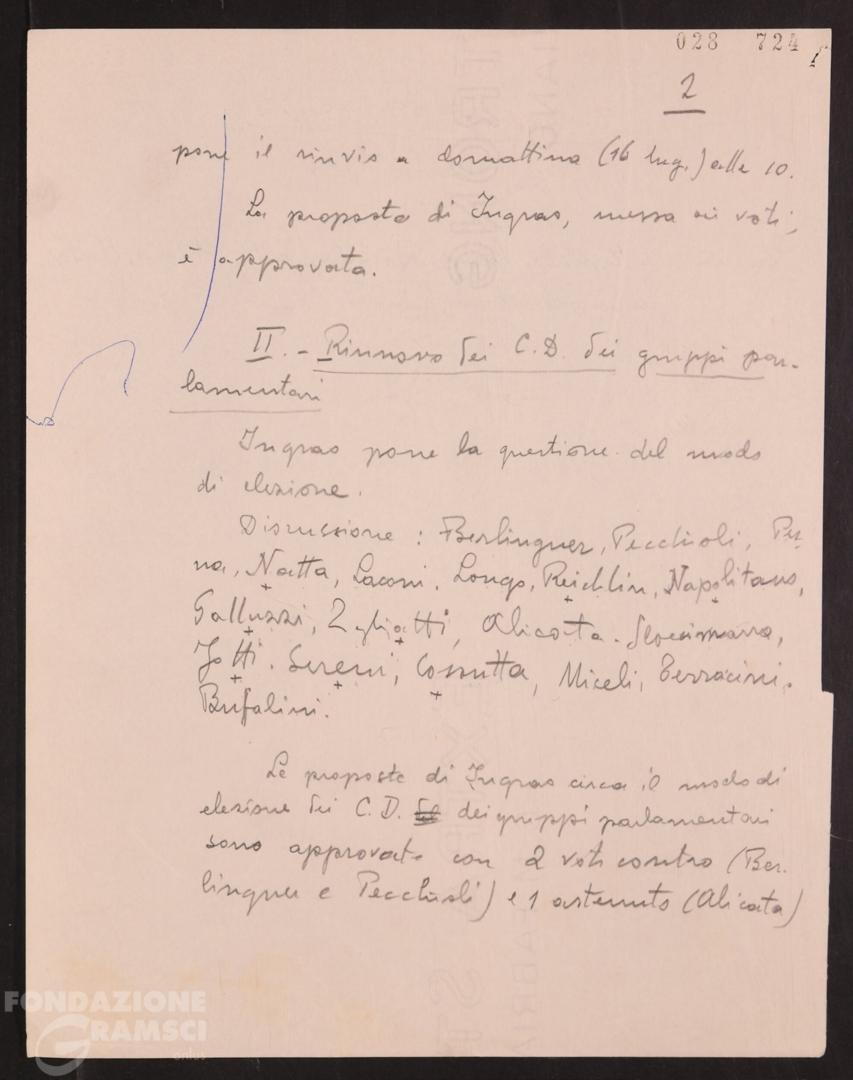 028 724
2
pone il rinvio a domattina (16 lug.) alle 10.
La proposta di Ingrao, messa ai voti,
è approvata.
II. - Rinnovo dei C.D. dei gruppi par-
lamentari
Ingrao pone la questione del modo
di elezione.
Discussione: Berlinguer, Pecchioli, Per
na, Natta, Laconi, Longo, Reichlin, Napolitano,
Galluzzi, Alicata. Scoccimarro,
Jotti. Sereni, Cossutta, Miceli, Terracini.
Bufalini.
Le proposte di Ingrao circa il modo di
elezione dei C.D. dei gruppi parlamentari
sono approvate con 2 voti contro (Ber-
linguer e Pecchioli) e 1 astenuto (Alicata)
FONDAZIONE
GRAMSCI
onlus